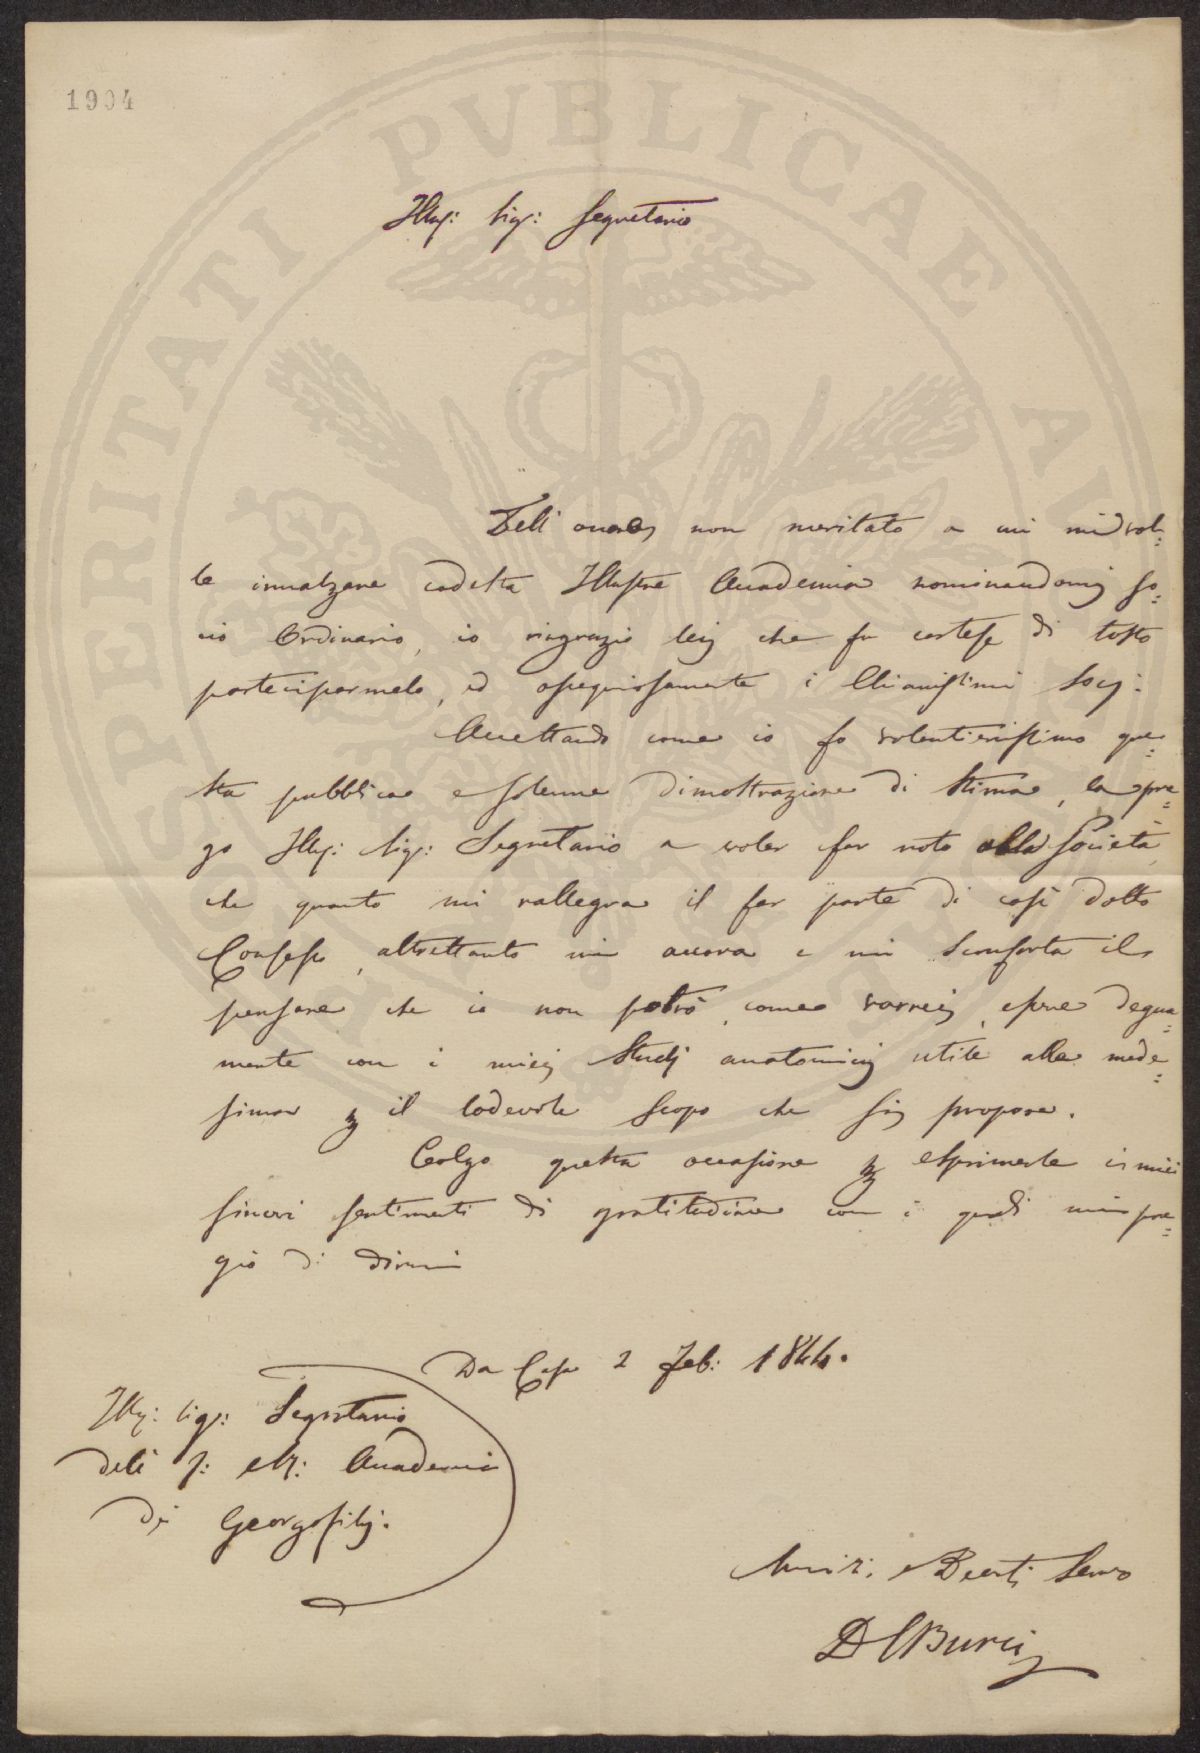 1904
PROSPERITATI PVBLICAE AVGENDAE
Illmo: Sigr: Segretario
Dell' onore non meritato a cui mi vol=
le innalzare codesta Illustre Accademia nominandomi so=
cio Ordinario, io ringrazio lei che fu cortese di tosto
parteciparmelo, ed ossequiosamente i Chiarissimi Socj.
Accettando come io fo volentierissimo que=
sta pubblica e solenne dimostrazione di stima, la pre=
go Illmo: Sigr: Segretario a voler far noto alla Società,
che quanto mi rallegra il far parte di così dotto
Consesso, altrettanto mi accora e mi sconforta il
pensare che io non potrò, come vorrei, essere degna=
mente con i miei Studj anatomici utile alla mede=
sima p il lodevole scopo che si propone.
Colgo questa occasione p esprimerle i miei
sinceri sentimenti di gratitudine con i quali mi pre=
gio di dirmi
Da Casa 2 Feb: 1844.
Illmo: Sigr: Segretario
dell' I: e R: Accademia
di Georgofili.
e Servo
D C Burci